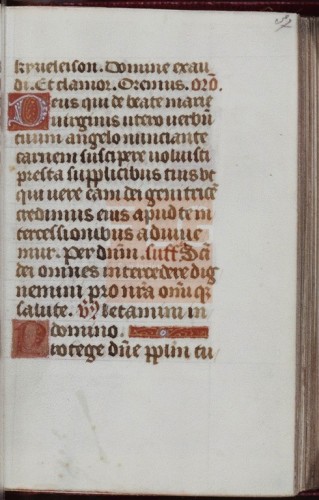 kyrieleison. Domine exau
di. Et clamor. Oremus. orõ.
Deus qui de beate marie
virginis utero verbũ
tuum angelo nunciante
carnem suscipere voluisti
presta supplicibus tuis vt
qui vere eam dei genitricẽ
credimus eius apud te in
tercessionibus adiuue
mur. Per dñm. suff. Scĩ
dei omnes intercedere dig
nemini pro nr̃a om̃i qȝ
salute. v̕ letamini in
domino.
Protege dñe pplm tu